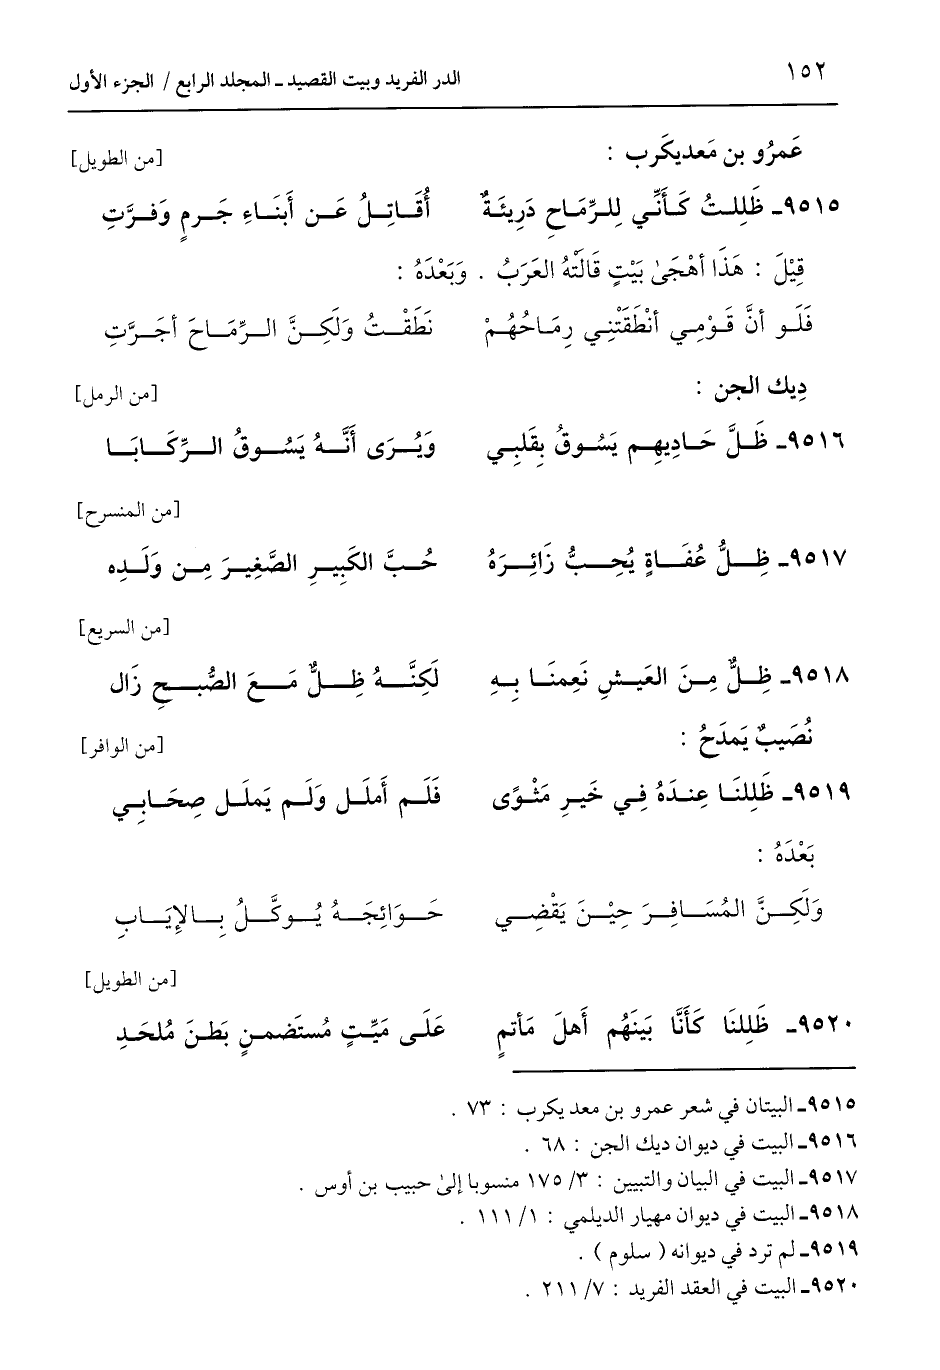 ١٥٢ الدر الفريد وبيت القصيد ـ المجلد الرابع / الجزء الأول
عَمرُو بن مَعديكَرب : [من الطويل]
٩٥١٥ـ ظَلِلتُ كَأَنِّي لِلرِّمَاحِ دَرِيئَةٌ أُقَاتِلُ عَن أَبنَاءِ جَرمٍ وَفرَّتِ
قِيْلَ : هَذَا أهْجَىٰ بَيْتٍ قَالَتْهُ العَرَبُ . وَبَعْدَهُ :
فَلَو أنَّ قَوْمِي أنْطَقَتْنِي رِمَاحُهُمْ نَطَقْتُ وَلَكِنَّ الرِّمَاحَ أجَرَّتِ
دِيك الجن : [من الرمل]
٩٥١٦ـ ظَلَّ حَادِيهِم يَسُوقُ بِقَلبِي وَيُرَى أَنَّهُ يَسُوقُ الرِّكَابَا
[من المنسرح]
٩٥١٧ـ ظِلُّ عُفَاةٍ يُحِبُّ زَائِرَهُ حُبَّ الكَبِيرِ الصَّغِيرَ مِن وَلَدِه
[من السريع]
٩٥١٨ـ ظِلٌّ مِنَ العَيشِ نَعِمنَا بِهِ لَكِنَّهُ ظِلٌّ مَعَ الصُّبحِ زَال
نُصَيبٌ يَمدَحُ : [من الوافر]
٩٥١٩ـ ظَلِلنَا عِندَهُ فِي خَيرِ مَثْوًى فَلَم أَملَل وَلَم يَملَل صِحَابِي
بَعْدَهُ :
وَلَكِنَّ المُسَافِرَ حِيْنَ يَقْضِي حَوَائِجَهُ يُوكَّلُ بِالإِيَابِ
[من الطويل]
٩٥٢٠ـ ظَلِلنَا كَأَنَّا بَينَهُم أَهلَ مَأتمٍ عَلَى مَيِّتٍ مُستَضمنٍ بَطنَ مُلحَدِ
٩٥١٥ـ البيتان في شعر عمرو بن معد يكرب : ٧٣ .
٩٥١٦ـ البيت في ديوان ديك الجن : ٦٨ .
٩٥١٧ـ البيت في البيان والتبيين : ٣/ ١٧٥ منسوبا إلىٰ حبيب بن أوس .
٩٥١٨ـ البيت في ديوان مهيار الديلمي : ١/ ١١١ .
٩٥١٩ـ لم ترد في ديوانه ( سلوم ) .
٩٥٢٠ـ البيت في العقد الفريد : ٧/ ٢١١ .